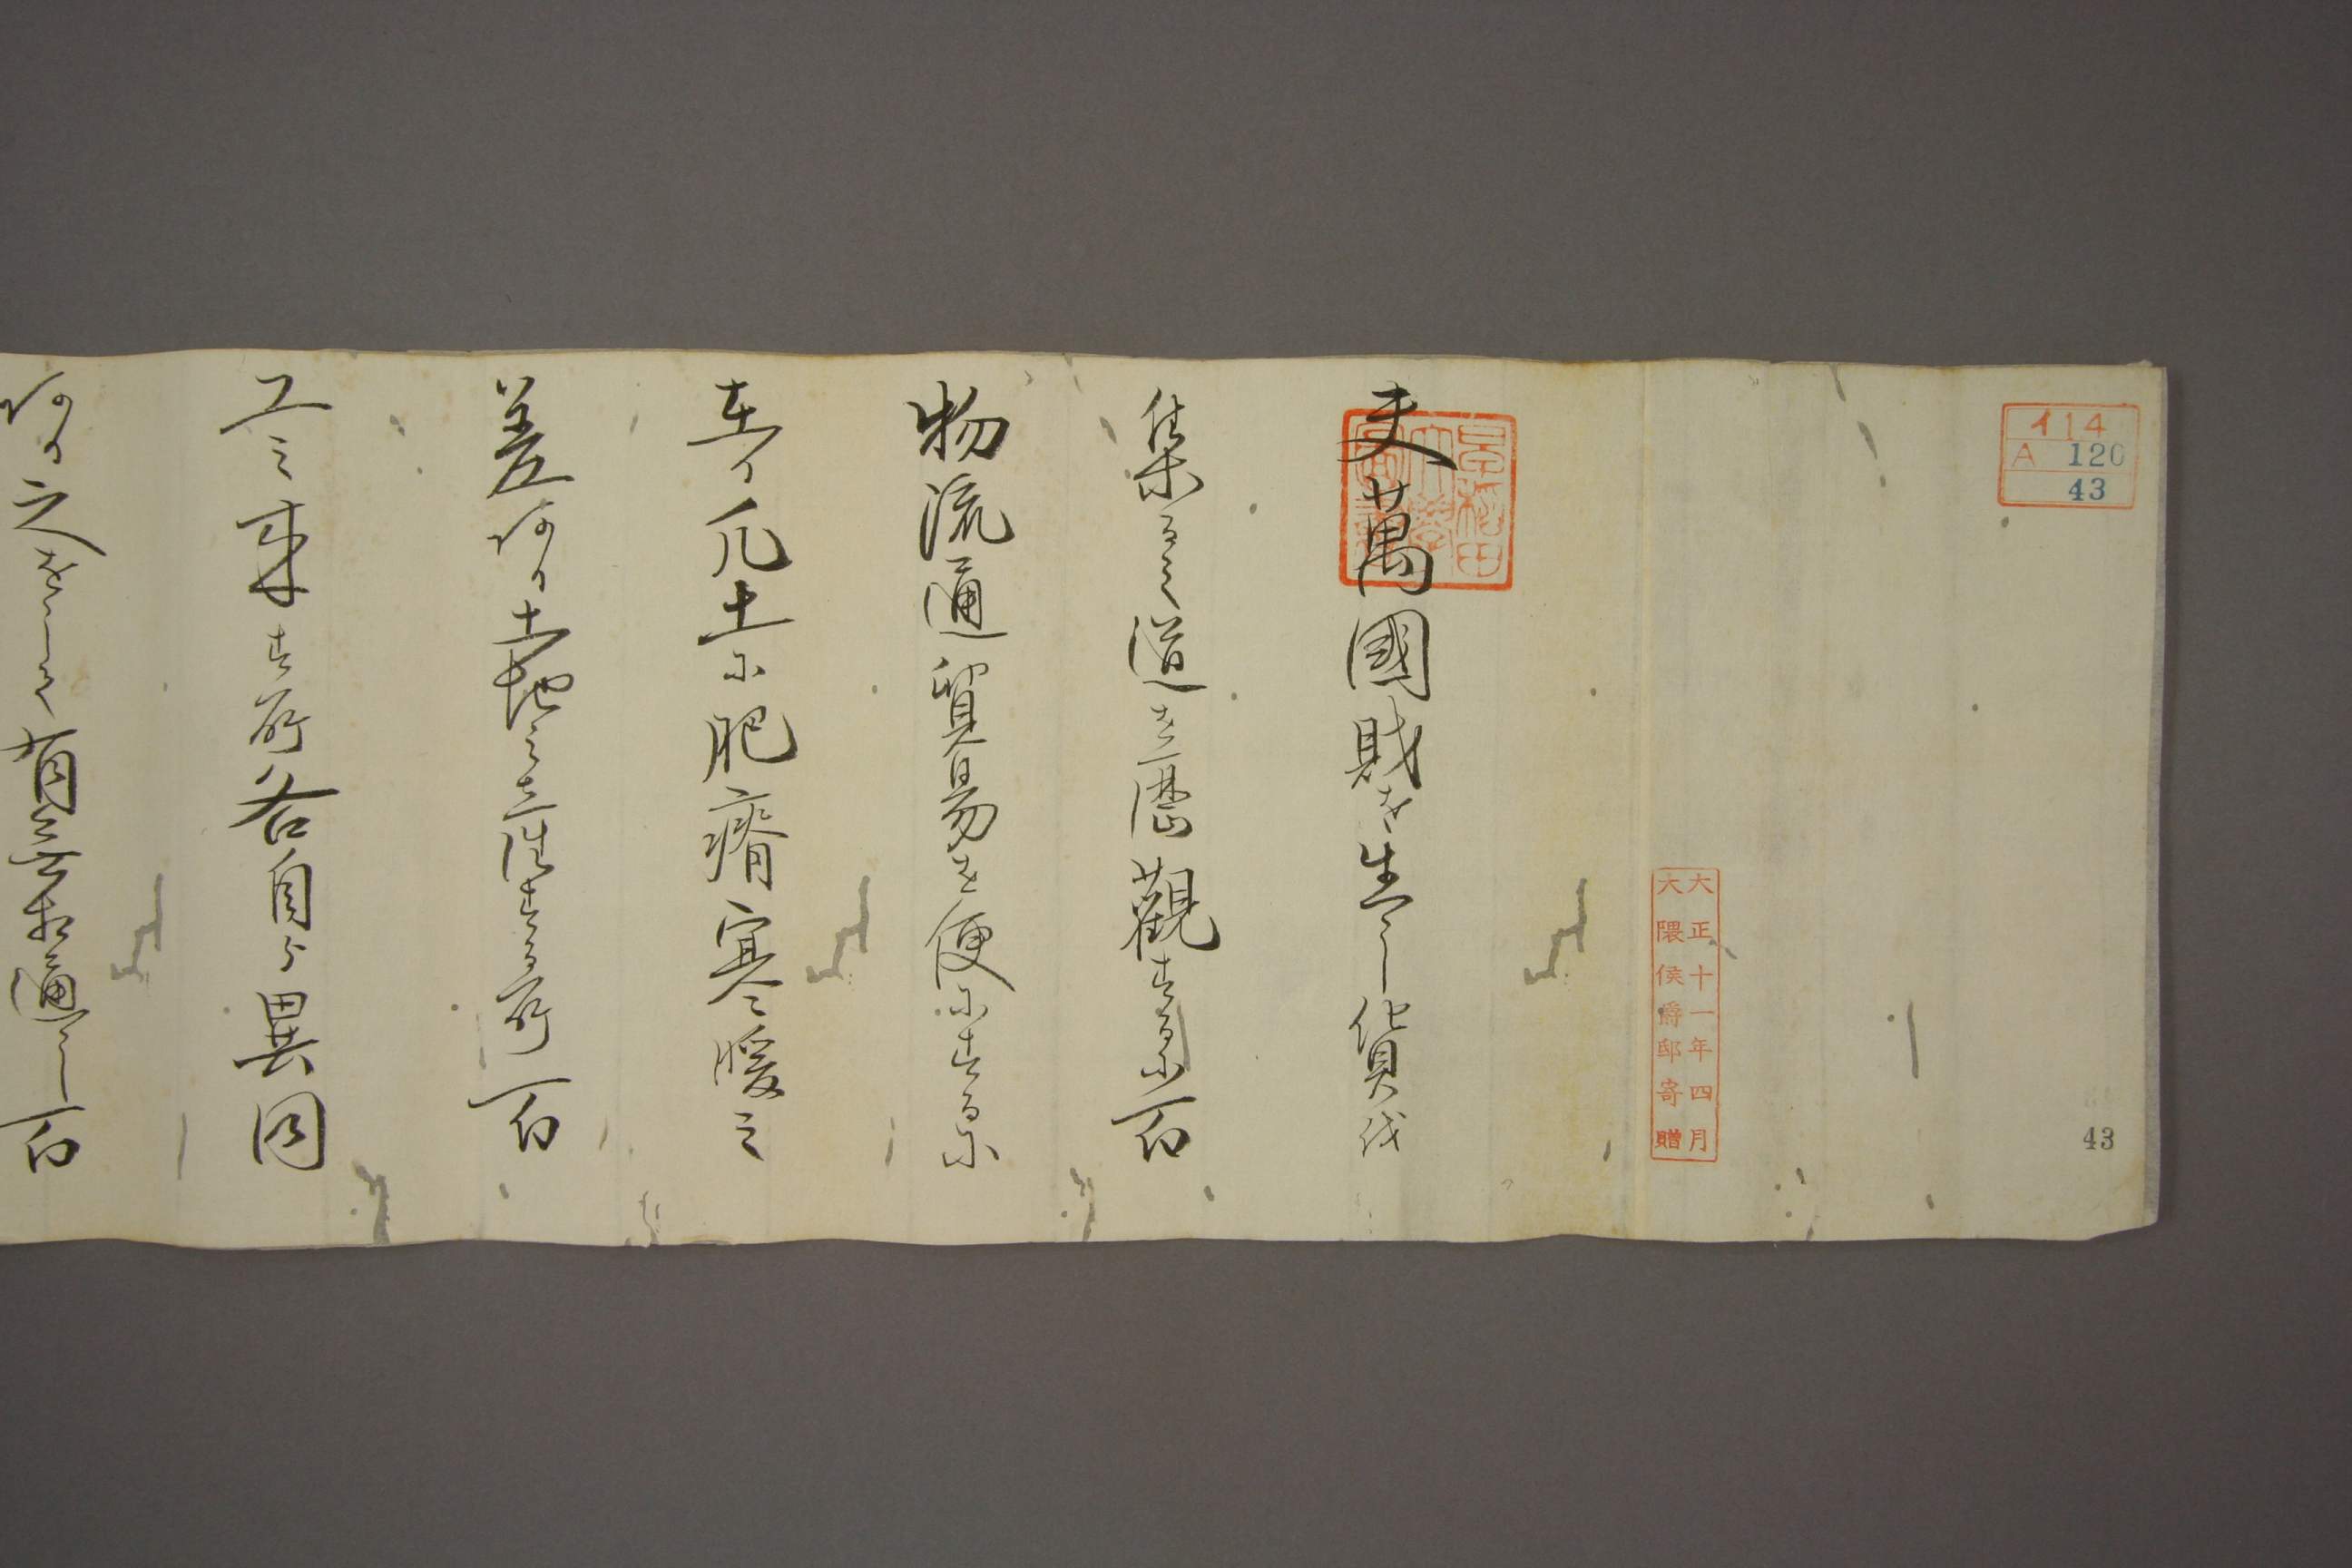 イ14
A 120
43
大正十一年四月
大隈侯爵邸寄贈
43
早稲田
大學
圖書
夫萬國財を生し貨を
集るの道を歴觀するに百
物流通貿易を便にするに
在り凡土に肥瘠寒暖之
差あり土地之生する所百
工之来す所各自ら異同
あり之をして有無相通し百